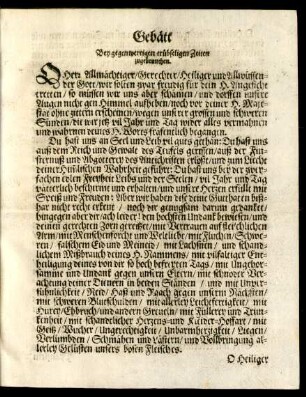 Gebätt
Bey gegenwertigen trübseligen Zeiten
zugebrauchen.
O Herr Allmächtiger/ Gerechter/ Heiliger und Allwüssen-
der Gott/ wir solten zwar freudig für dein H. Angesicht
tretten/ so müssen wir uns aber schämen/ und dörffen unsere
Augen nicht gen Himmel aufheben/ noch vor deiner H. Maje-
stat ohne zittern erscheinen/ wegen unserer grossen und schweren
Sünden/ die wir jetz vil Jahr und Tag wider alles vermahnen
und wahrnen deines H. Worts frefentlich begangen.
Du hast uns an Seel und Leib vil guts gethan: Du hast uns
auß dem Reich und Gewalt des Teufels gerissen/ auß der Fin-
sternuß und Abgötterey des Antichristen erlößt/ und zum Liecht
deiner Himlischen Wahrheit geführt: Du hast uns bey der zwey-
fachen edlen Freyheit Leibs und der Seelen/ vil Jahr und Tag
vätterlich beschirmt und erhalten/ und unsere Hertzen erfüllt mit
Speiß und Freuden: Aber wir haben dise deine Gutthaten bißhar
nicht recht erkent/ noch der gnugsam darum gedancket/
hingegen aber dir/ ach leider! den höchsten Undanck bewisen/ und
deinen gerechten Zorn gereitzet/ mit Vertrauen auf fleischlichen
Arm/ mit Menschenforcht und Weltliebe/ mit Fluchen/ Schwe-
ren/ falschem Eid und Meineid/ mit Lachsnen/ und schand-
lichem Mißbrauch deines H. Nammens/ mit vilfaltiger Ent-
heiligung deines von dir so hoch befreyten Tags/ mit Ungehor-
samme und Undanck gegen unsern Eltern/ mit schnöder Ver-
achtung deiner Dienern in beiden Ständen/ und mit Unver-
söhnlichkeit/ Neid/ Haß und Raach gegen unsern Nächsten/
mit schweren Blutschulden/ mit allerley Leichtfertigkeit/ mit
Hurey/ Ehbruch/ und andern Greueln/ mit Füllerey und Trun-
ckenheit/ mit schandtlicher Hertzens- und Kleider-Hoffart/ mit
Geitz/ Wucher/ Ungerechtigkeit/ Unbarmhertzigkeit/ Liegen/
Verlümbden/ Schmähen und Lästern/ und Vollbringung al-
lerley Gelüsten unsers bösen Fleisches.
O Heiliger